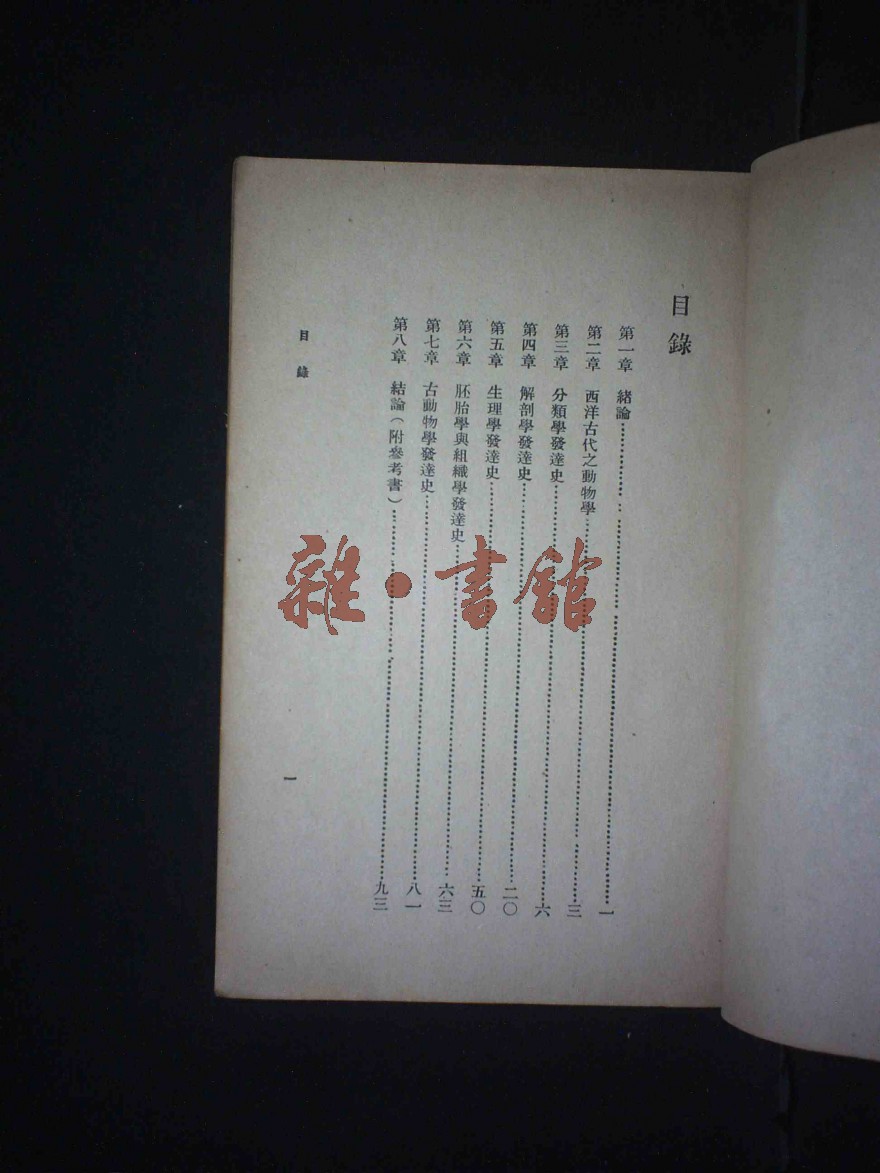 目錄
第一章 緒論……一
第二章 西洋古代之動物學……三
第三章 分類學發達史……六
第四章 解剖學發達史……二〇
第五章 生理學發達史……五〇
第六章 胚胎學與組織學發達史……六三
第七章 古動物學發達史……八一
第八章 結論（附參考書）……九三
目錄
一
雜·書館